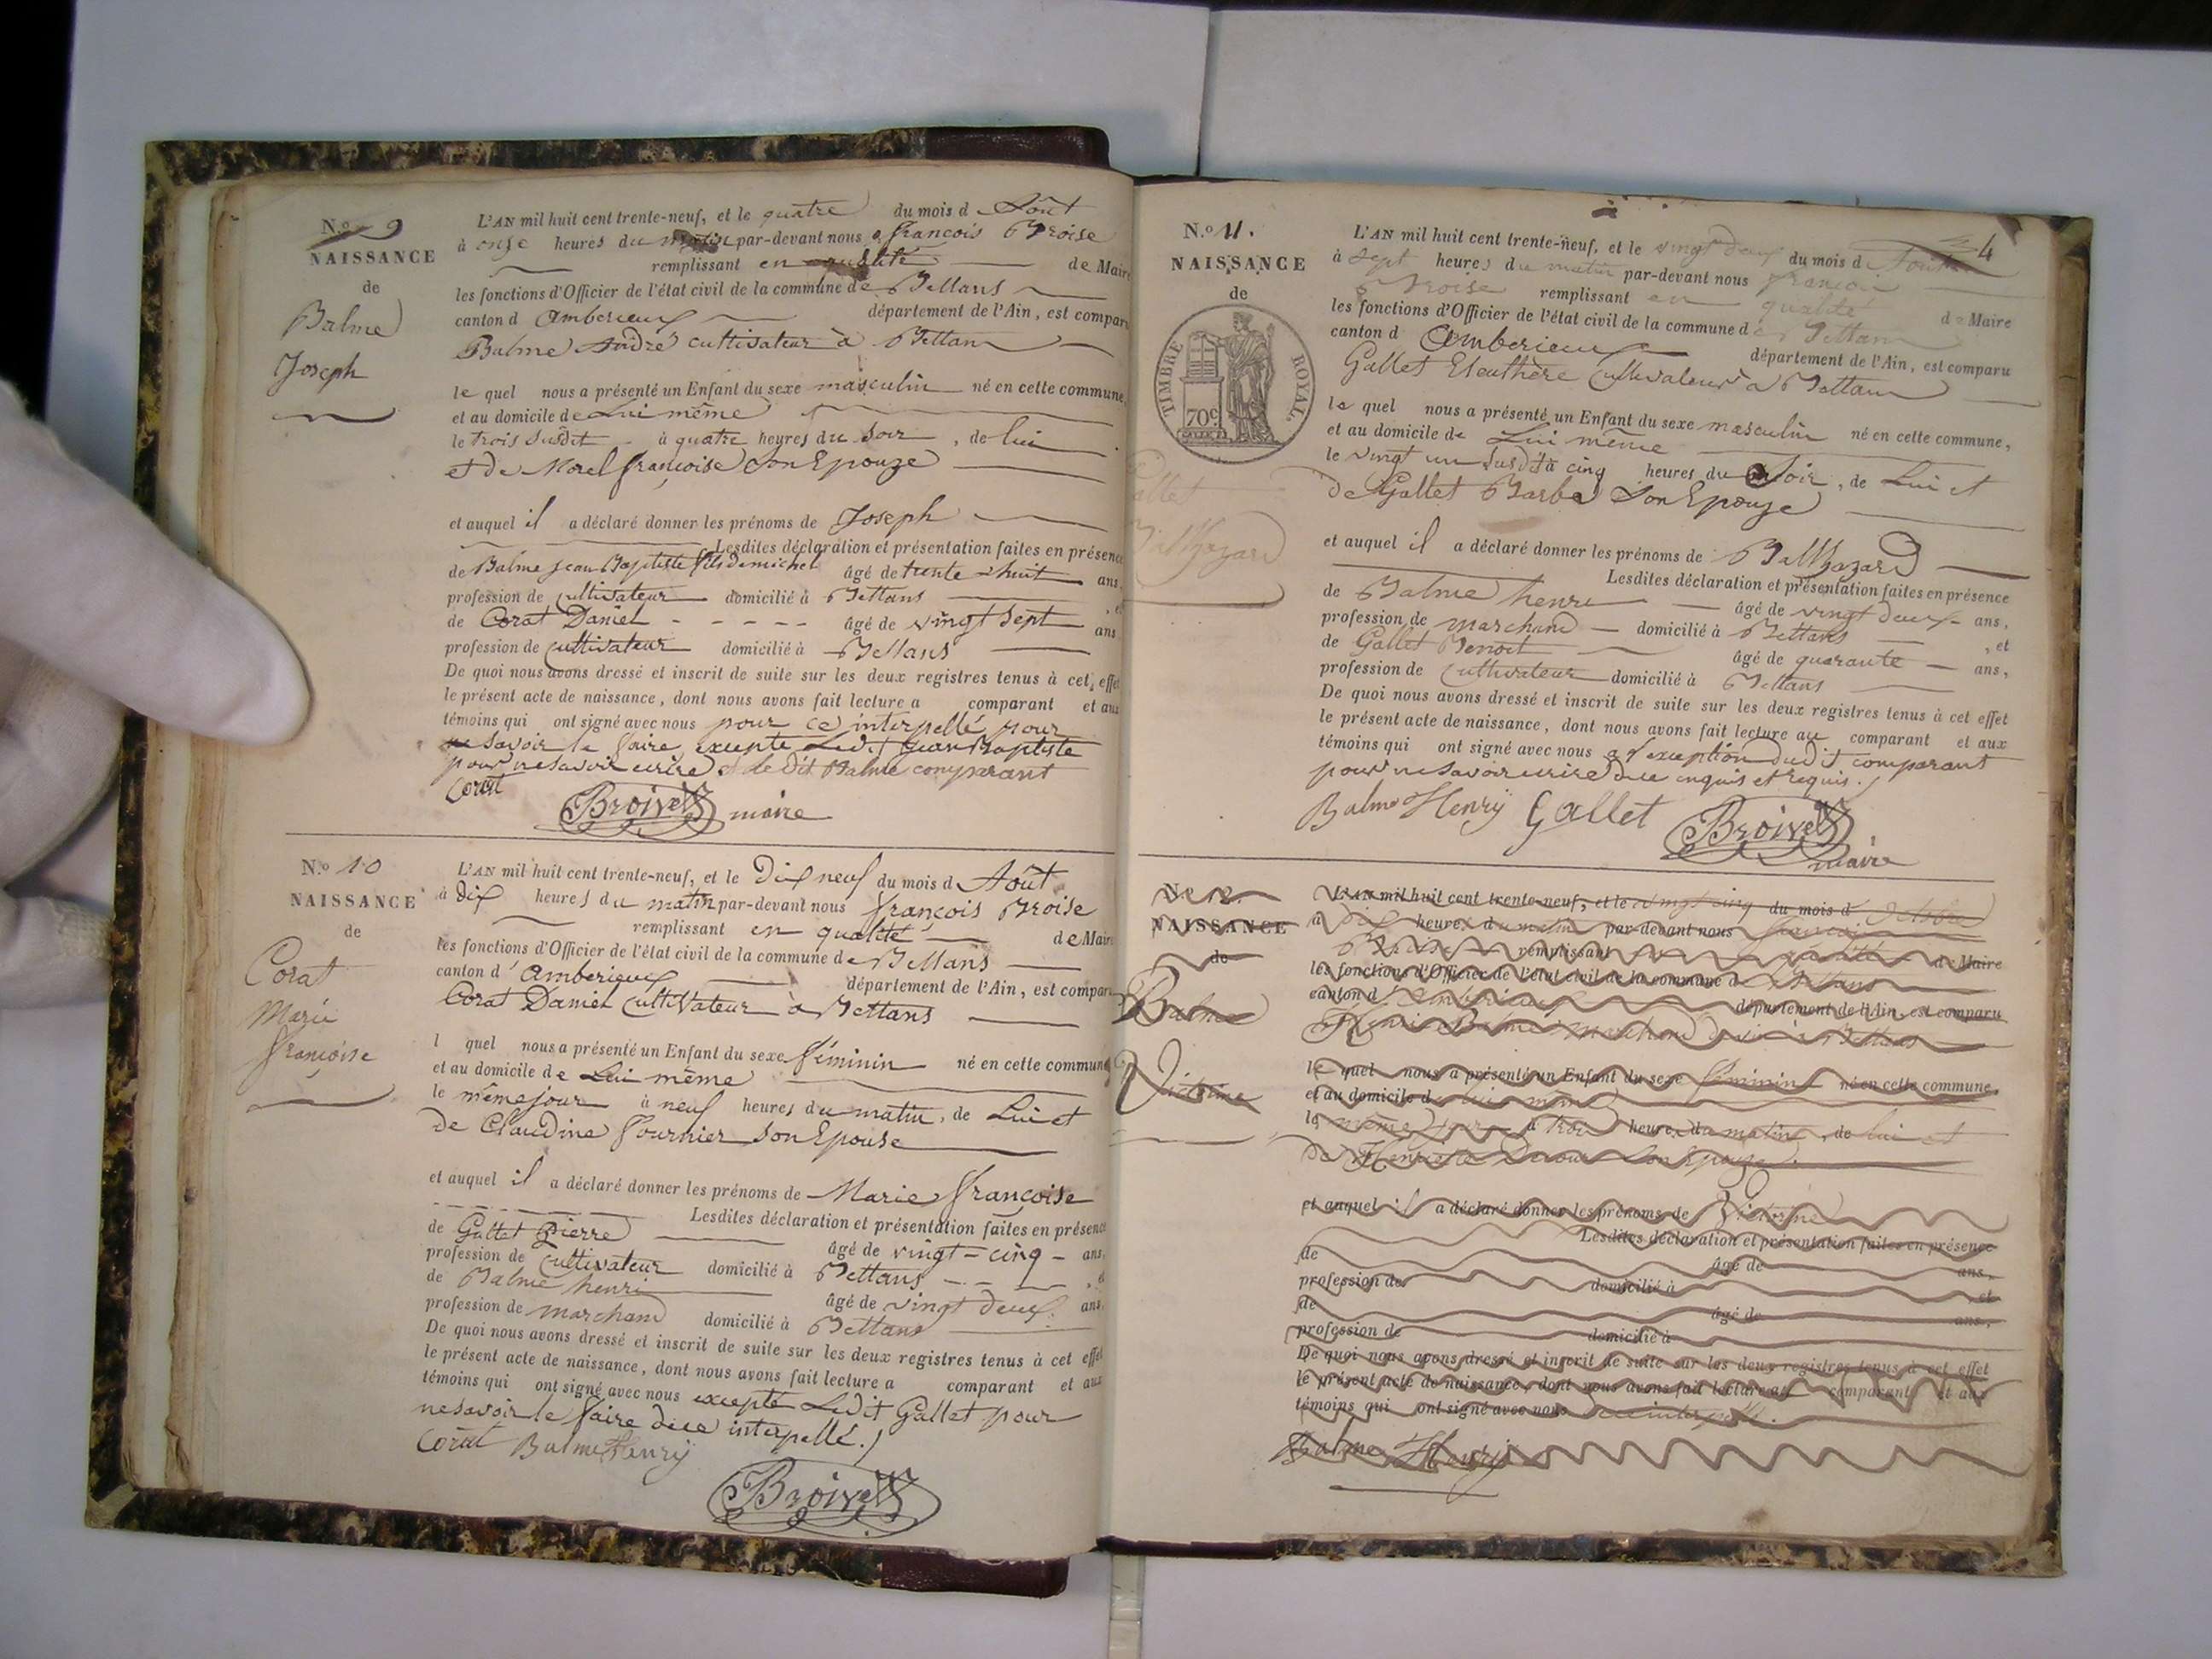 N.º 9
NAISSANCE
de
Balme
Joseph
L'AN mil huit cent trente-neuf, et le quatre du mois d Août
à onze heures du matin par-devant nous françois Broise
remplissant en qualité de Maire
les fonctions d'Officier de l'état civil de la commune de Bettans
canton d amberieux département de l'Ain, est compar
Balme André cultivateur à Bettans
le quel nous a présenté un Enfant du sexe masculin né en cette commune,
et au domicile de Lui même
le trois susdit à quatre heures du soir, de lui
et de Morel françoise son Epouze
et auquel il a déclaré donner les prénoms de Joseph
Lesdites déclaration et présentation faites en présence
de Balme jean Baptiste fils de michel âgé de trente huit ans,
profession de cultivateur domicilié à Bettans
de Corat Daniel âgé de vingt sept ans
profession de cultivateur domicilié à Bettans
De quoi nous avons dressé et inscrit de suite sur les deux registres tenus à cet effet
le présent acte de naissance, dont nous avons fait lecture a comparant et aux
témoins qui ont signé avec nous pour ce interpellé pour
ne savoir le faire excepté Ledit jean Baptiste
pour ne savoir ecrire et le dit Balme comparant
Corat
Broise maire
N.º 10
NAISSANCE
de
Corat
Marie
françoise
L'AN mil huit cent trente-neuf, et le Dix neuf du mois d Août
à dix heures du matin par-devant nous françois Broise
remplissant en qualité de Maire
les fonctions d'Officier de l'état civil de la commune de Bettans
canton d'amberieux département de l'Ain, est compar
Corat Daniel cultivateur à Bettans
l quel nous a présenté un Enfant du sexe féminin né en cette commune
et au domicile de Lui même
le même jour à neuf heures du matin, de Lui et
de Claudine fournier son Epouse
et auquel il a déclaré donner les prénoms de Marie françoise
Lesdites déclaration et présentation faites en présence
de Gallet Pierre âgé de vingt-cinq ans,
profession de cultivateur domicilié à Bettans
de Balme henri âgé de vingt deux ans,
profession de marchand domicilié à Bettans
De quoi nous avons dressé et inscrit de suite sur les deux registres tenus à cet effet
le présent acte de naissance, dont nous avons fait lecture a comparant et aux
témoins qui ont signé avec nous excepté Ledit Gallet pour
ne savoir le faire de ce interpellé.
Corat Balme Henry
Broise
4
N.º 11.
NAISSANCE
de
TIMBRE ROYAL
70c
Gallet
Balthazard
L'AN mil huit cent trente-neuf, et le vingt deux du mois d Août
à Sept heures du matin par-devant nous françois
Broise remplissant en qualité de Maire
les fonctions d'Officier de l'état civil de la commune de Bettans
canton d amberieux département de l'Ain, est comparu
Gallet Eleuthère cultivateur à Bettans
le quel nous a présenté un Enfant du sexe masculin né en cette commune,
et au domicile de Lui même
le vingt un susdit à cinq heures du soir, de Lui et
de Gallet Barbe son Epouze
et auquel il a déclaré donner les prénoms de Balthazard
Lesdites déclaration et présentation faites en présence
de Balme henri âgé de vingt deux ans,
profession de marchand domicilié à Bettans, et
de Gallet Benoit âgé de quarante ans,
profession de cultivateur domicilié à Bettans
De quoi nous avons dressé et inscrit de suite sur les deux registres tenus à cet effet
le présent acte de naissance, dont nous avons fait lecture au comparant et aux
témoins qui ont signé avec nous a l'exception dudit comparant
pour ne savoir ecrire de ce enquis et requis.
Balme Henry Gallet Broise
maire
NAISSANCE
de
Balme
Victorine
L'AN mil huit cent trente-neuf, et le vingt cinq du mois d'Octobre
à dix heures du matin par-devant nous françois
Broise remplissant en qualité de Maire
les fonctions d'Officier de l'état civil de la commune de Bettans
canton d'amberieux département de l'Ain, est comparu
Henri Balme marchand à Bettans
le quel nous a présenté un Enfant du sexe féminin né en cette commune,
et au domicile de lui même
le même jour à trois heures du matin, de lui et
de Henriette son Epouze
et auquel il a déclaré donner les prénoms de Victorine
Lesdites déclaration et présentation faites en présence
de âgé de ans,
profession de domicilié à, et
de âgé de ans,
profession de domicilié à
De quoi nous avons dressé et inscrit de suite sur les deux registres tenus à cet effet
le présent acte de naissance, dont nous avons fait lecture au comparant et aux
témoins qui ont signé avec nous de ce interpellé.
Balme Henry